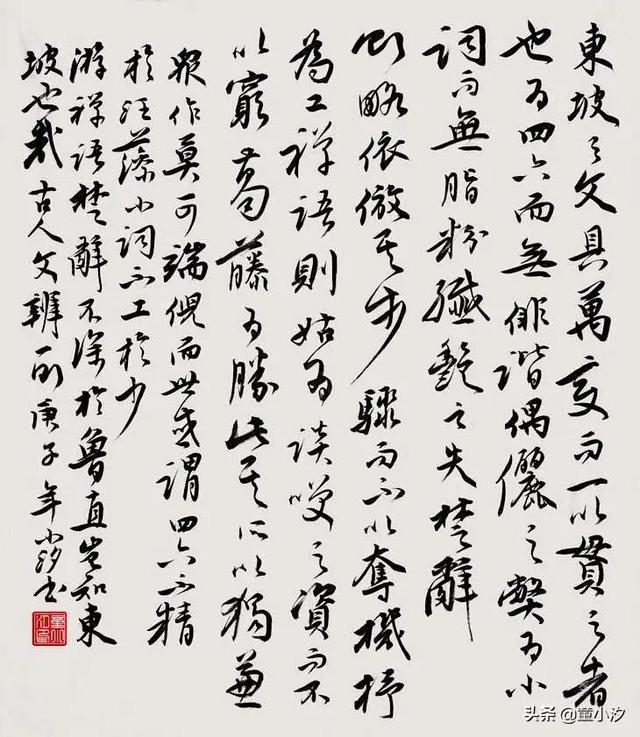 東坡之文具萬變而一以貫之者
也為四六而無俳諧偶儷之弊為小
詞而無脂粉纖艷之失楚辭
則略依倣其步驟而不以奪機杼
為工禪語則姑為談笑之資而不
以窮葛藤為勝此其所以獨兼
眾作莫可端倪而世或謂四六不精
於汪藻小詞不工於少
游禪語楚辭不深於魯直豈知東
坡也哉 古人文辨一則 庚子年小汐書
头条 @董小汐